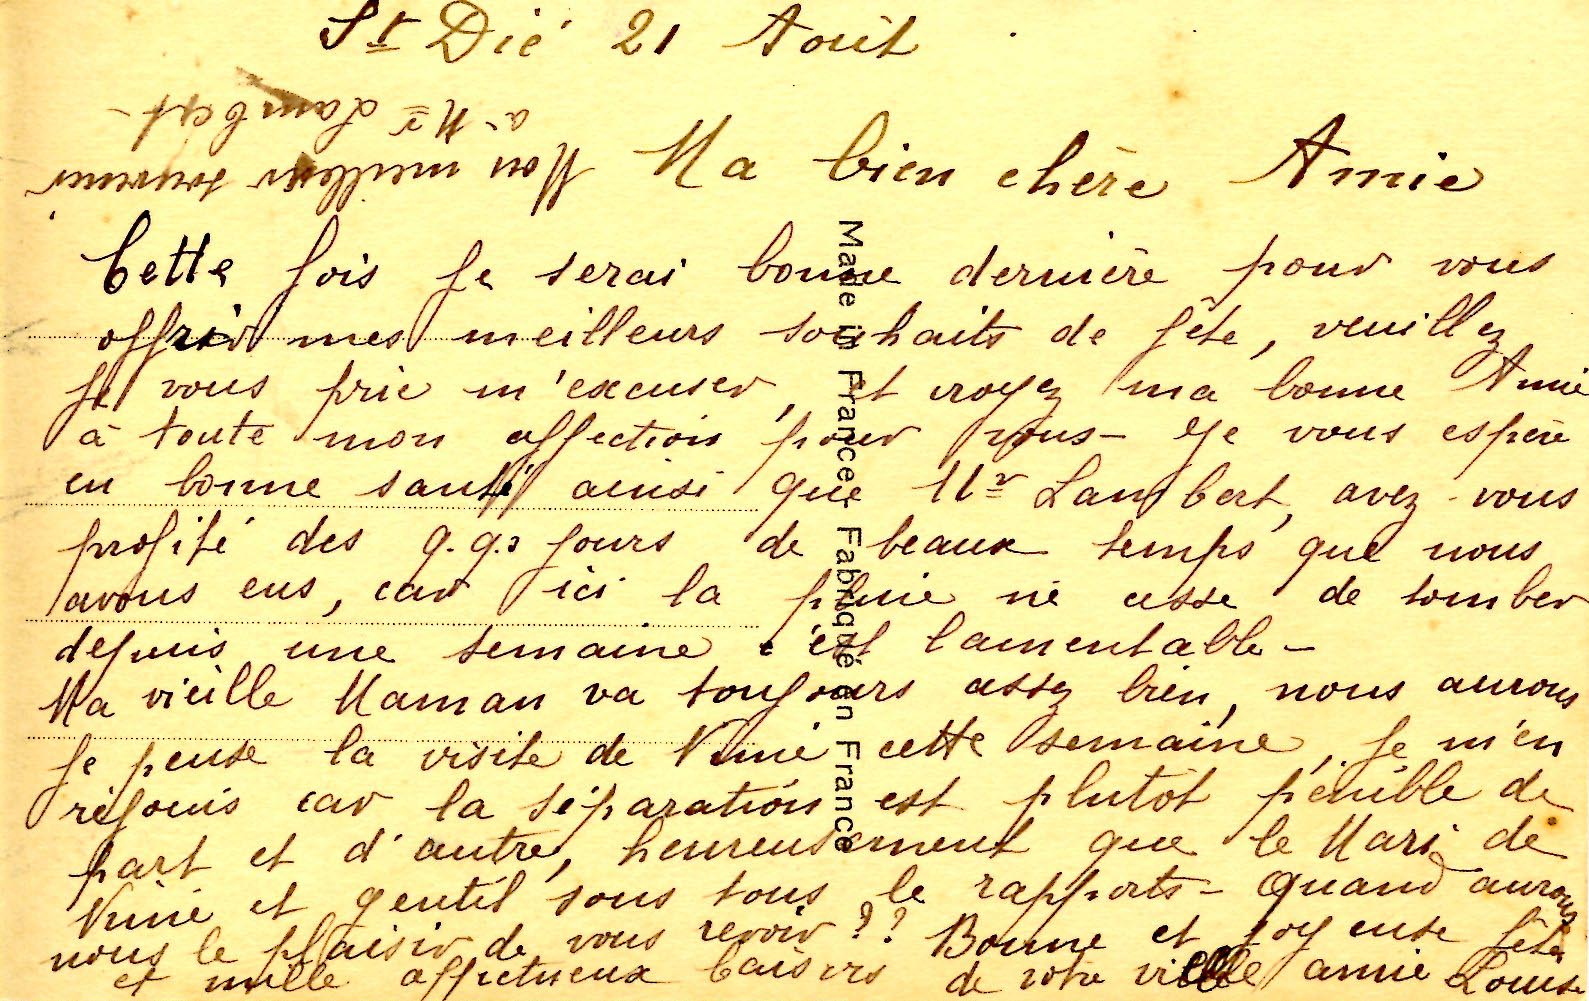 St Dié 21 Août
Ma bien chère Amie
Cette fois je serai bonne dernière pour vous
offrir mes meilleurs souhaits de fête, veuillez
je vous prie m'excuser, et croyez ma bonne Amie
à toute mon affection pour vous - Je vous espère
en bonne santé ainsi que Mr Lambert, avez-vous
profité des q.q.s jours de beaux temps que nous
avons eus, car ici la pluie ne cesse de tomber
depuis une semaine c'est lamentable -
Ma vieille Maman va toujours assez bien, nous aurons
je pense la visite de Ninie cette semaine, je m'en
réjouis car la séparation est plutôt pénible de
part et d'autre, heureusement que le Mari de
Ninie et gentil sous tous le rapports - Quand aurons
nous le plaisir de vous revoir ?? Bonne et joyeuse fête
et mille affectueux baisers de votre vieille amie Louise
Mon meilleur souvenir
à Mr Lambert -
Made in France Fabriqué en France